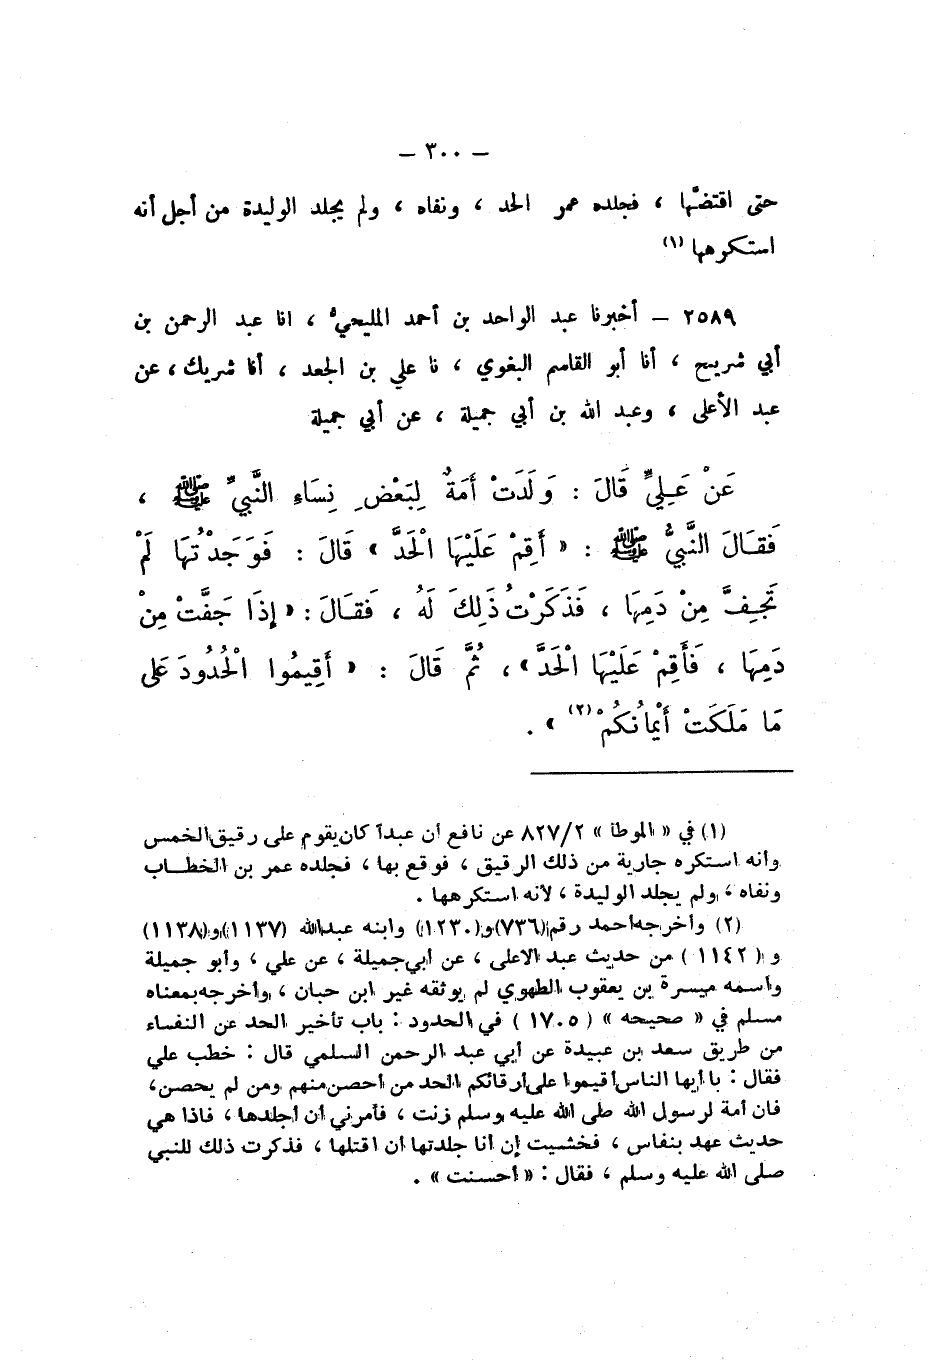 — ٣٠٠ —
حتى اقتضَّها ، فجلده عمر الحد ، ونفاه ، ولم يجلد الوليدة من أجل أنه
استكرهها (١)
٢٥٨٩ — أخبرنا عبد الواحد بن أحمد المليحي ، انا عبد الرحمن بن
أبي شريح ، أنا أبو القاسم البغوي ، نا علي بن الجعد ، أنا شريك ، عن
عبد الأعلى ، وعبد الله بن أبي جميلة ، عن أبي جميلة
عَنْ عَلِيٍّ قَالَ : وَلَدَتْ أَمَةٌ لِبَعْضِ نِسَاءِ النَّبِيِّ ﷺ ،
فَقَالَ النَّبِيُّ ﷺ : « أَقِمْ عَلَيْهَا الْحَدَّ » قَالَ : فَوَجَدْتُهَا لَمْ
تَجِفَّ مِنْ دَمِهَا ، فَذَكَرْتُ ذَلِكَ لَهُ ، فَقَالَ : « إِذَا جَفَّتْ مِنْ
دَمِهَا ، فَأَقِمْ عَلَيْهَا الْحَدَّ » ، ثُمَّ قَالَ : « أَقِيمُوا الْحُدُودَ عَلَى
مَا مَلَكَتْ أَيْمَانُكُمْ (٢) » .
(١) في « الموطأ » ٨٢٧/٢ عن نافع أن عبداً كان يقوم على رقيق الخمس
وأنه استكره جارية من ذلك الرقيق ، فوقع بها ، فجلده عمر بن الخطاب
ونفاه ، ولم يجلد الوليدة ، لأنه استكرهها .
(٢) وأخرجه احمد رقم (٧٣٦) و (١٢٣٠) وابنه عبدالله (١١٣٧) و (١١٣٨)
و (١١٤٢) من حديث عبد الاعلى ، عن أبي جميلة ، عن علي ، وأبو جميلة
واسمه ميسرة بن يعقوب الطهوي لم يوثقه غير ابن حبان ، وأخرجه بمعناه
مسلم في « صحيحه » (١٧٠٥) في الحدود : باب تأخير الحد عن النفساء
من طريق سعد بن عبيدة عن أبي عبد الرحمن السلمي قال : خطب علي
فقال : يا أيها الناس أقيموا على أرقائكم الحد من أحصن منهم ومن لم يحصن ،
فان أمة لرسول الله صلى الله عليه وسلم زنت ، فأمرني أن أجلدها ، فاذا هي
حديث عهد بنفاس ، فخشيت إن أنا جلدتها أن اقتلها ، فذكرت ذلك للنبي
صلى الله عليه وسلم ، فقال : « أحسنت » .